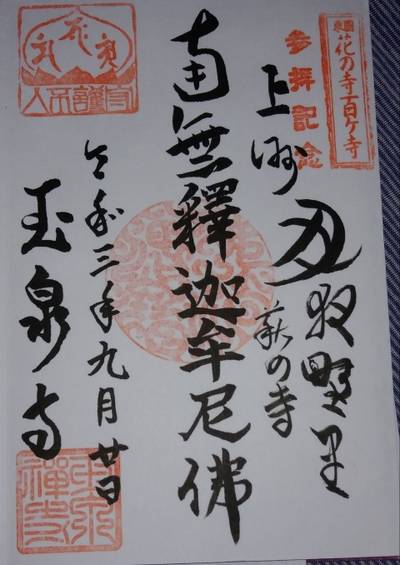 花の寺百ケ寺
参拝記念
上州
月夜野里
萩の寺
南無釋迦牟尼佛
令和三年九月廿日
玉泉寺
玉泉
禅寺